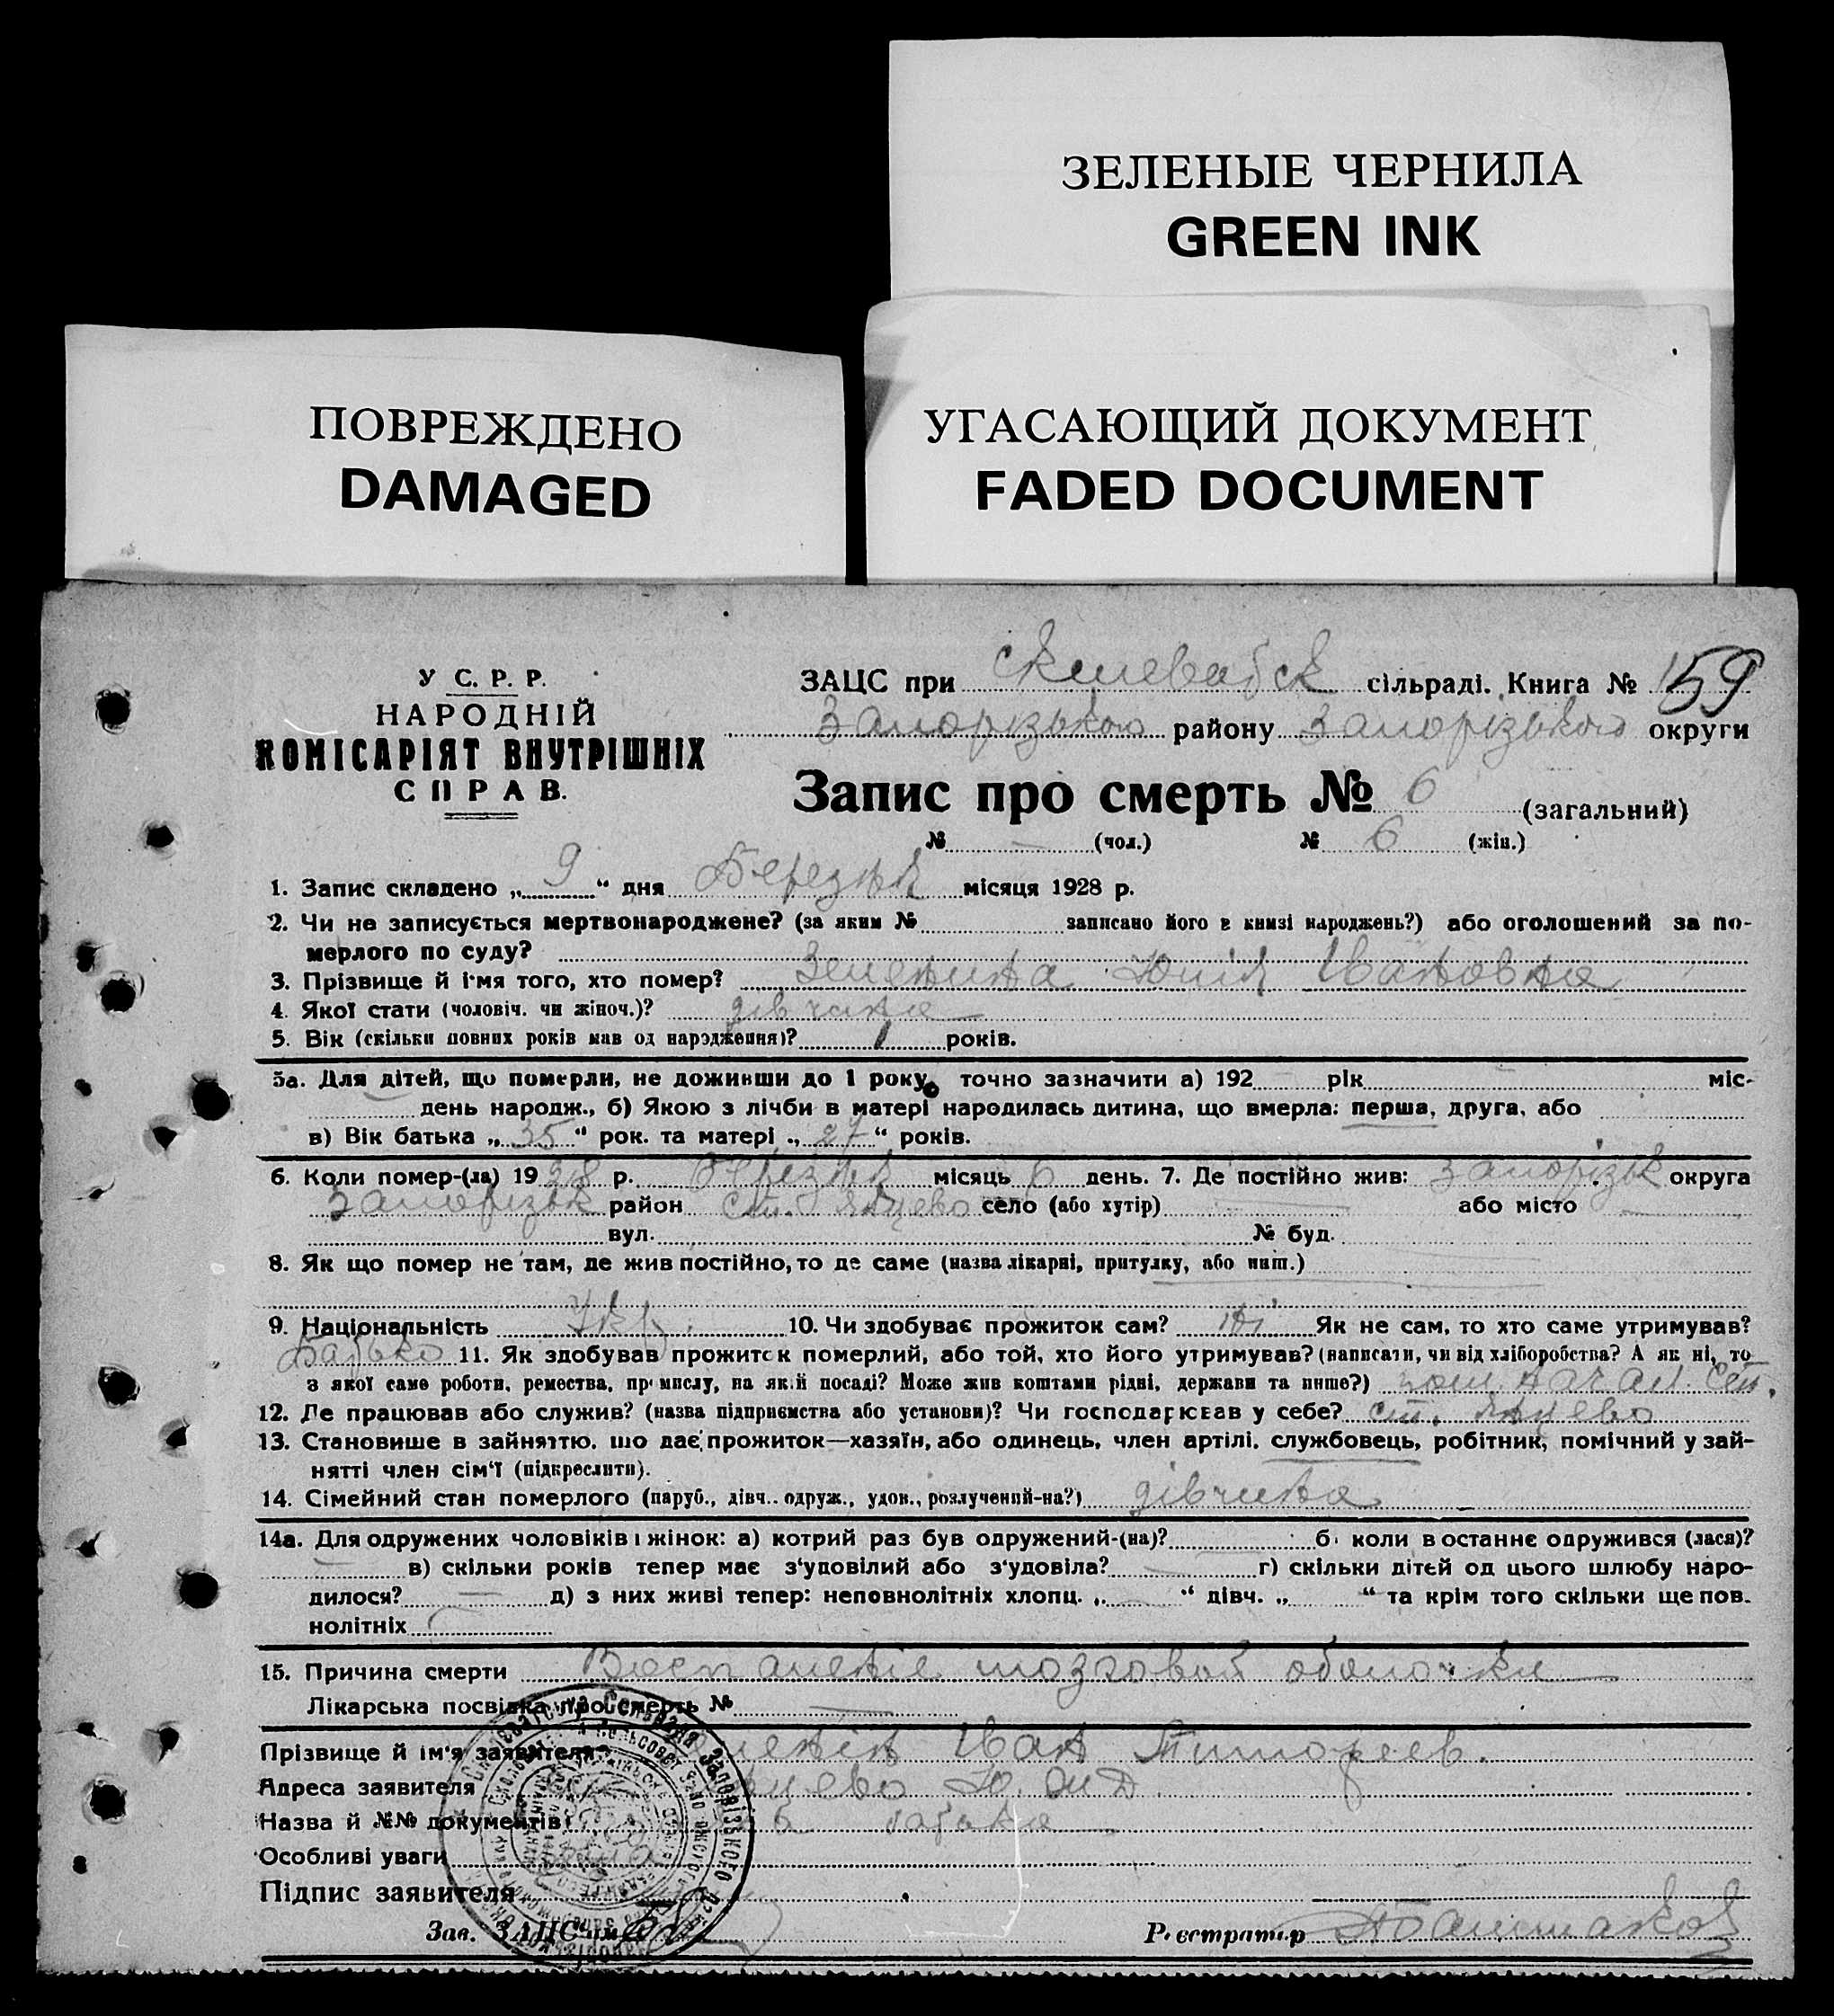 ЗЕЛЕНЫЕ ЧЕРНИЛА
GREEN INK
ПОВРЕЖДЕНО
DAMAGED
УГАСАЮЩИЙ ДОКУМЕНТ
FADED DOCUMENT
У С. Р. Р.
НАРОДНІЙ
КОМІСАРІЯТ ВНУТРІШНІХ
СПРАВ.
ЗАЦС при сільраді. Книга № 159
Запорізького району Запорізького округи
Запис про смерть № 6 (загальний)
№ — (чол.) № 6 (жін.)
1. Запис складено „ 9 “ дня Березня місяця 1928 р.
2. Чи не записується мертвонароджене? (за яким № записано його в книзі народжень?) або оголошений за по-
мерлого по суду?
3. Прізвище й ім'я того, хто помер? Зеленина Юлія Івановна
4. Якої стати (чоловіч. чи жіноч.)? дівчина
5. Вік (скільки повних років мав од народження)? 1 років.
5а. Для дітей, що померли, не доживши до 1 року, точно зазначити а) 192 рік міс-
день народж., б) Якою з лічби в матері народилась дитина, що вмерла: перша, друга, або
в) Вік батька „ 35 “ рок. та матері „ 27 “ років.
6. Коли помер-(ла) 1928 р. Березня місяць 6 день. 7. Де постійно жив: Запорізьк округа
Запорізьк район ст. Янцево село (або хутір) — або місто —
вул. № буд.
8. Як що помер не там, де жив постійно, то де саме (назва лікарні, притулку, або инш.)
9. Національність Укр. 10. Чи здобуває прожиток сам? ні Як не сам, то хто саме утримував?
Батько 11. Як здобував прожиток померлий, або той, хто його утримував? (написати, чи від хліборобства? А як ні, то
з якої саме роботи, ремества, промислу, на якій посаді? Може жив коштами рідні, держави та инше?) пом. начал. ст.
12. Де працював або служив? (назва підприємства або установи)? Чи господарював у себе? ст. Янцево
13. Становише в зайняттю, що дає прожиток—хазяїн, або одинець, член артілі, службовець, робітник, помічний у зай-
нятті член сім'ї (підкреслити).
14. Сімейний стан померлого (паруб., дівч., одруж., удов., розлучений-на?) дівчина —
14а. Для одружених чоловіків і жінок: а) котрий раз був одружений-(на)? б) коли в останнє одружився (лася)?
— в) скільки років тепер має з'уповілий або з'удовіла? — г) скільки дітей од цього шлюбу наро-
дилося? — д) з них живі тепер: неповнолітніх хлопц. „ — “ дівч. „ “ та крім того скільки ще пов.
нолітніх
15. Причина смерти Воспаленіе мозговой оболочки
Лікарська посвідка про смерть № —
Прізвище й ім'я заявителя Іван Тимофеев.
Адреса заявителя
Назва й №№ документів
Особливі уваги
Підпис заявителя
Зав. ЗАЦС'ом
Реєстратор